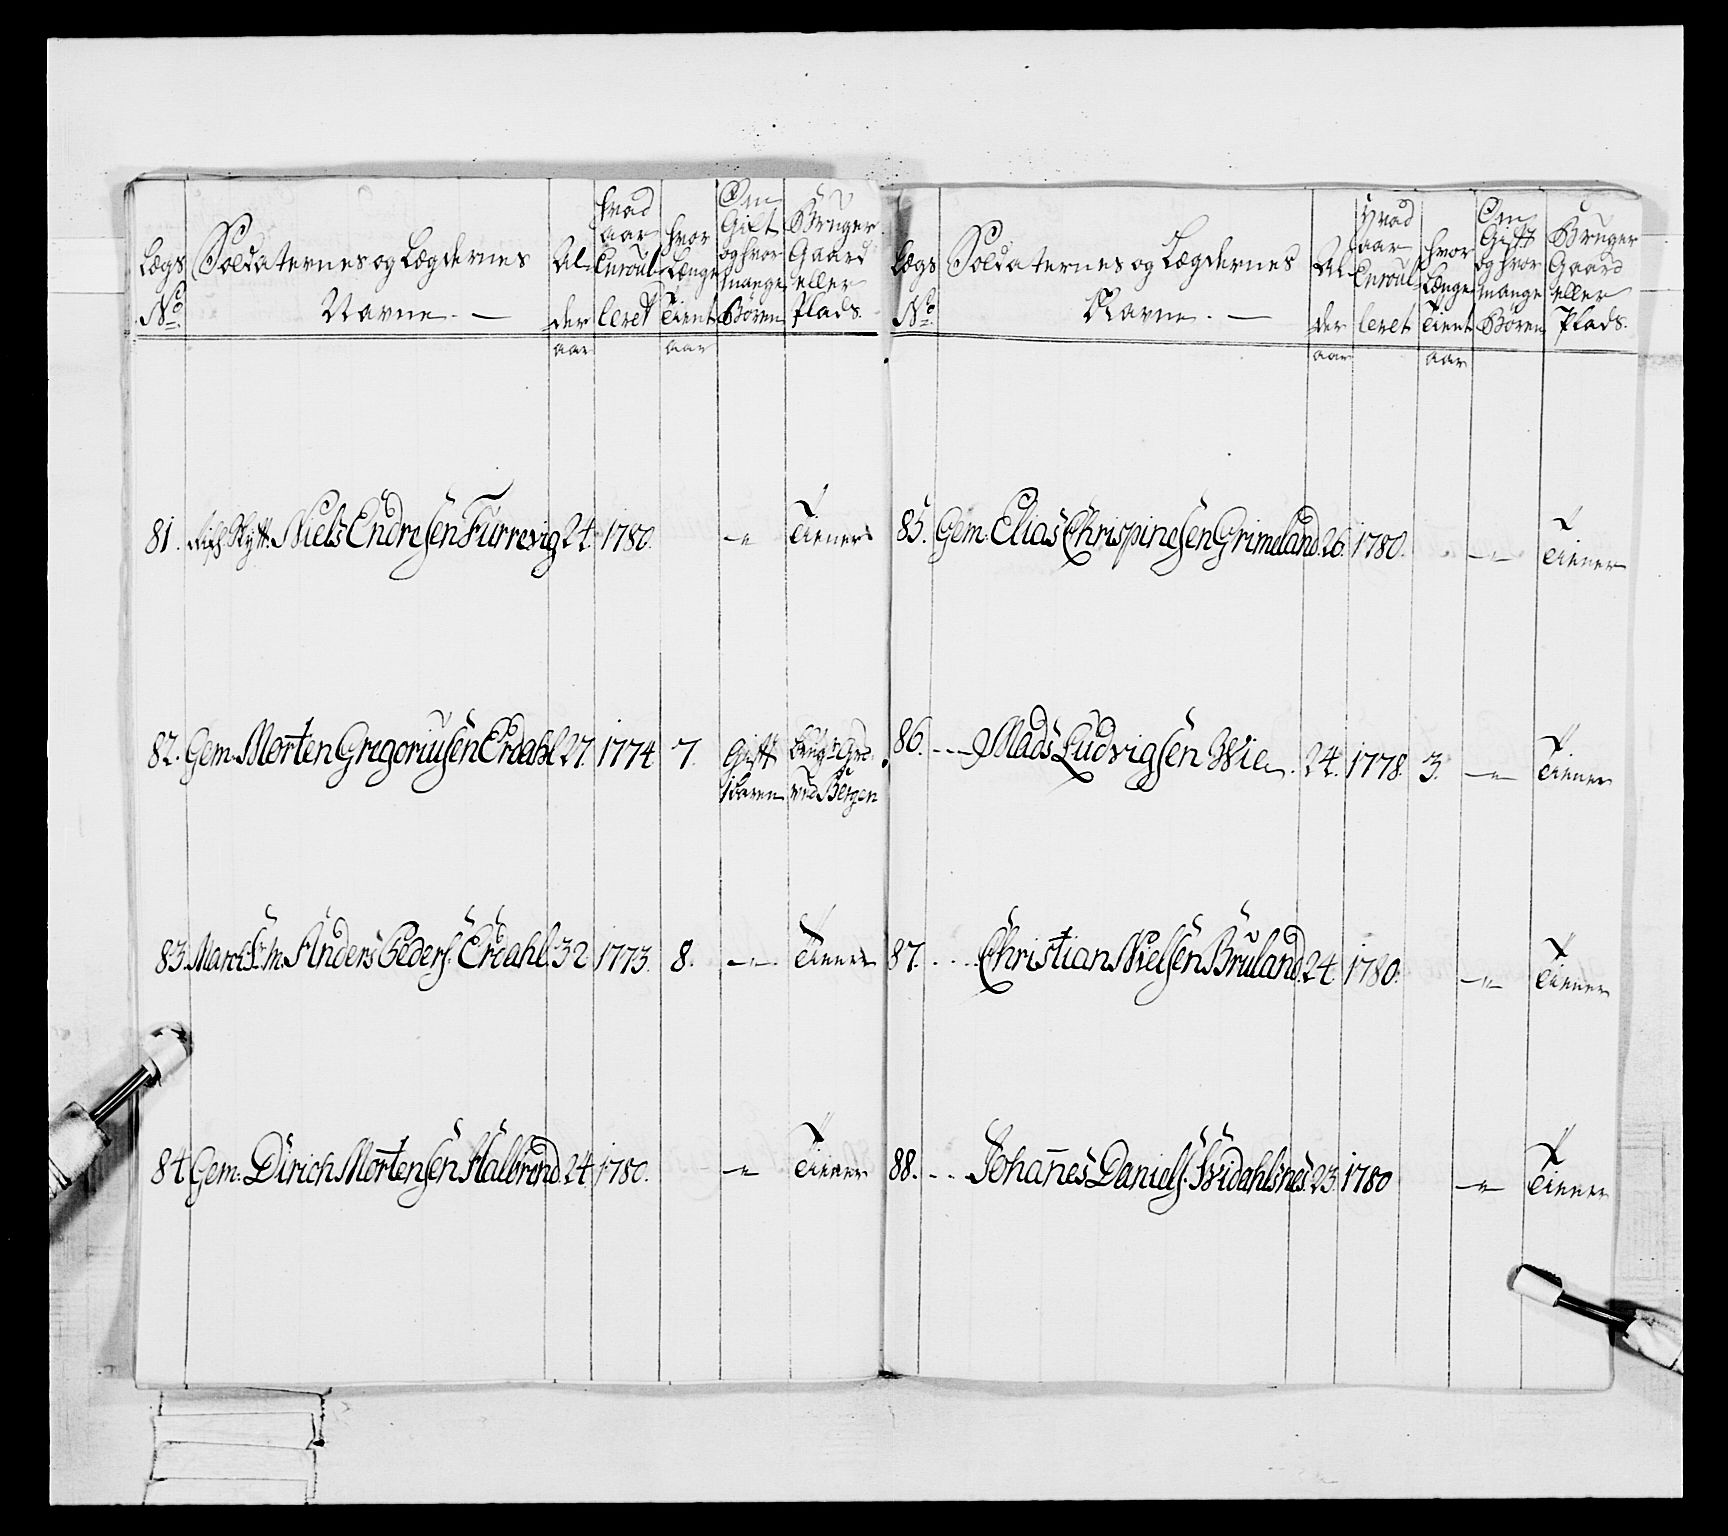 Lægs No.
Soldaternes og Lægdernes Navne.
Alder
Hvad aar Enroulleret
Hvor Længe Tient
Om Gift og hvor mange Børen
Bruger Gaard eller Plads.
aar aar
81. Niels Endresen Furrevig 24. 1780. -"- Tiener
82. Gem. Morten Gregoriusen Erdahl 27. 1774 7. Gift 1 baren ved Bergen
83. Anders Peders. Erdahl. 32 1773. 8. -"- Tiener
84. Gem: Dirich Mortensen Halbrend. 24. 1780. -"- Tiener
Lægs No.
Soldaternes og Lægdernes Navne.
Alder
Hvad aar Enroulleret
Hvor Længe Tient
Om Gift og hvor mange Børen
Bruger Gaard eller Plads.
aar aar
85. Gem. Elias Chrispinesen Grimeland. 26. 1780. -"- Tiener
86. --- Mads Ludvigsen Wie. 24. 1778. 3. -"- Tiener
87. ... Christian Nielsen Bruland. 24. 1780. -"- Tiener
88. -- Johannes Daniels. Svidahlsnes. 23. 1780 -"- Tiener